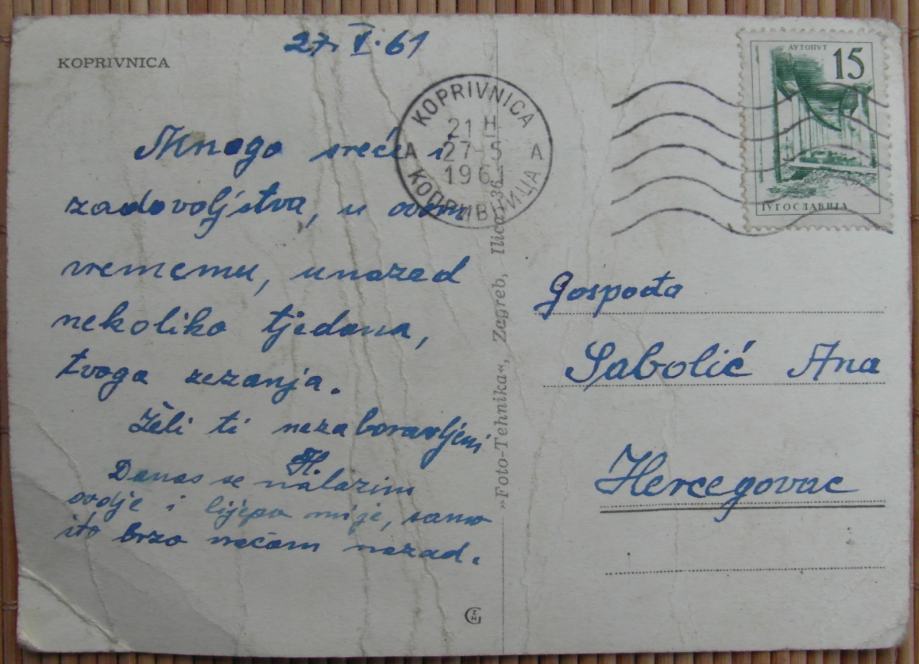 KOPRIVNICA
27. V. 61
Mnogo sreće i
zadovoljstva, u ovom
vremenu, unazad
nekoliko tjedana,
tvoga zezanja.
Želi ti nezaboravljeni
H.
Danas se nalazim
ovdje i lijepo mi je, samo
što brzo vraćam nazad.
KOPRIVNICA
21 H
A 27-5 A
1961
КОПРИВНИЦА
АУТОПУТ
15
ЈУГОСЛАВИЈА
»Foto-Tehnika«, Zagreb, Ilica 36
Gospođa
Sabolić Ana
Hercegovac